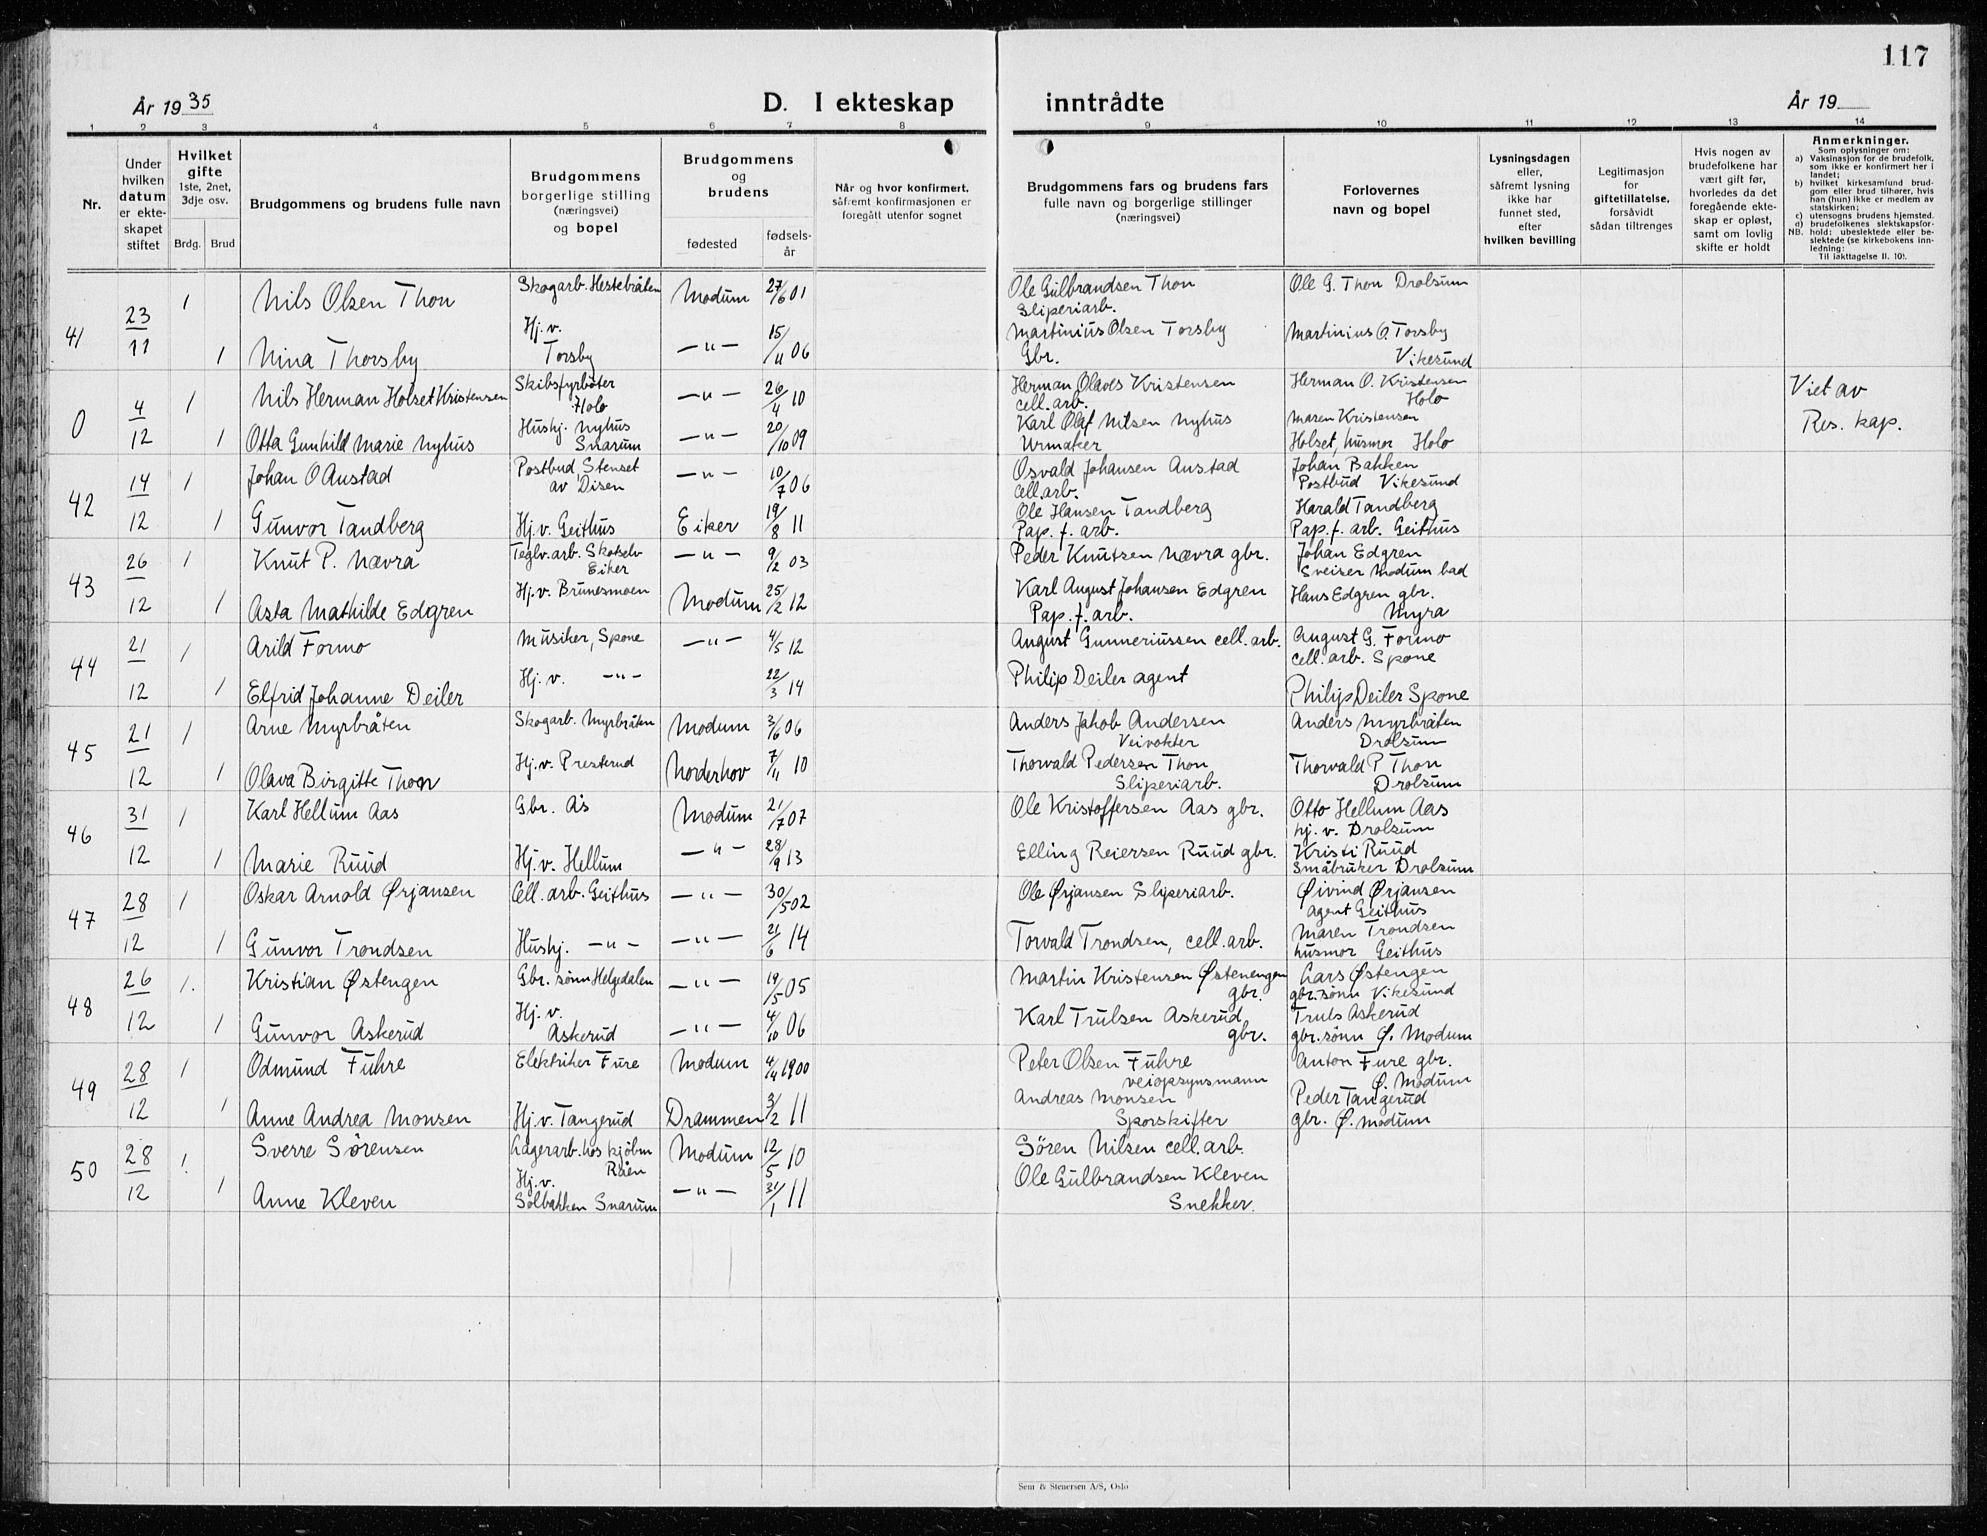 117
År 1935
D. I ekteskap inntrådte
År 19
1 2 3 4 5 6 7 8 9 10 11 12 13 14
Nr.
Under hvilken datum er ekteskapet stiftet
Hvilket gifte 1ste, 2net, 3dje osv.
Brdg. Brud
Brudgommens og brudens fulle navn
Brudgommens borgerlige stilling (næringsvei) og bopel
Brudgommens og brudens
fødested
fødselsår
Når og hvor konfirmert, såfremt konfirmasjonen er foregått utenfor sognet
Brudgommens fars og brudens fars fulle navn og borgerlige stillinger (næringsvei)
Forlovernes navn og bopel
Lysningsdagen eller, såfremt lysning ikke har funnet sted, efter hvilken bevilling
Legitimasjon for giftetillatelse, forsåvidt sådan tiltrenges
Hvis nogen av brudefolkene har vært gift før, hvorledes da det foregående ekteskap er opløst, samt om lovlig skifte er holdt
Anmerkninger.
Som oplysninger om:
a) Vaksinasjon for de brudefolk, som ikke er konfirmert her i landet;
b) hvilket kirkesamfund brudgom eller brud tilhører, hvis han (hun) ikke er medlem av statskirken;
c) utensogns brudens hjemsted.
d) brudefolkenes slektskapsforhold: ubeslektede eller beslektede (se kirkebokens innledning:
NB.
Til iakttagelse II. 10).
41 23/11 1 Nils Olsen Thon Skogarb. Hestebråten Modum 27/6 01 Ole Gulbrandsen Thon Sliperiarb. Ole G. Thon Drolsum
1 Nina Thorsby Hj. v. Torsby —"— 15/11 06 Martinius Olsen Torsby Gbr. Martinius O. Torsby Vikesund
0 4/12 1 Nils Herman Holset Kristensen Skibsfyrbøter Holo —"— 26/4 10 Herman Olaves Kristensen cell. arb. Herman O. Kristensen Holo Viet av Res. kap.
1 Otta Gunhild Marie Nyhus Hushj. Nyhus Snarum —"— 20/10 09 Karl Olaf Nilsen Nyhus Urmaker Maren Kristensen Holset, husmor Holo
42 14/12 1 Johan O Austad Postbud, Stenset av Disen —"— 10/7 06 Osvald Johansen Austad Cell. arb. Johan Bakken Postbud Vikesund
1 Gunvor Tandberg Hj. v. Geithus Eiker 19/8 11 Ole Hansen Tandberg Pap. f. arb. Harald Tandberg Pap. f. arb. Geithus
43 26/12 1 Knut P. Nævra Teglv. arb. Skotselv Eiker —"— 9/2 03 Peder Knutsen Nævra gbr. Johan Edgren Sveiser Modum bad
1 Asta Mathilde Edgren Hj. v. Brunesmoen Modum 25/2 12 Karl August Johansen Edgren Pap. f. arb. Hans Edgren gbr. Myra
44 21/12 1 Arild Formo Musiker, Spone —"— 4/5 12 August Gunneriussen cell. arb. August G. Formo cell. arb. Spone
1 Elfrid Johanne Deiler Hj. v. —"— 22/3 14 Philip Deiler agent Philip Deiler Spone
45 21/12 1 Arne Myrbråten Skogarb. Myrbråten Modum 3/6 06 Anders Jakob Andersen Veivokter Anders Myrbråten Drolsum
1 Olava Birgitte Thon Hj. v. Presterud Norderhov 7/11 10 Thorvald Pedersen Thon Sliperiarb. Thorvald P Thon Drolsum
46 31/12 1 Karl Hellum Aas Gbr. Ås Modum 21/7 07 Ole Kristoffersen Aas gbr. Otto Hellum Aas hj. v. Drolsum
1 Marie Ruud Hj. v. Hellum —"— 28/9 13 Elling Reiersen Ruud gbr. Kristi Ruud Småbruker Drolsum
47 28/12 1 Oskar Arnold Ørjansen Cell. arb. Geithus —"— 30/5 02 Ole Ørjansen Sliperiarb. Øivind Ørjansen agent Geithus
1 Gunvor Trondsen Hushj. —"— —"— 21/6 14 Torvald Trondsen, cell. arb. Maren Trondsen husmor Geithus
48 26/12 1. Kristian Østengen Gbr. sønn Helgedalen —"— 19/5 05 Martin Kristensen Østenengen gbr. Lars Østengen gbr. sønn Vikesund
1 Gunvor Askerud Hj. v. Askerud —"— 4/10 06 Karl Trulsen Askerud gbr. Truls Askerud gbr. sønn Ø. Modum
49 28/12 1 Odmund Fuhre Elektriker Fure Modum 4/4 1900 Peter Olsen Fuhre veiopsynsmann Anton Fure gbr. Ø. Modum
1 Anne Andrea Monsen Hj. v. Tangerud Drammen 3/2 11 Andreas Monsen Sporskifter Peder Tangerud gbr. Ø. Modum
50 28/12 1. Sverre Sørensen Lagerarb. hos kjøbm Råen Modum 12/5 10 Søren Nilsen cell. arb.
1 Anne Kleven Hj. v. Solbakken Snarum —"— 31/1 11 Ole Gulbrandsen Kleven Snekker.
Sem & Stenersen A/S, Oslo